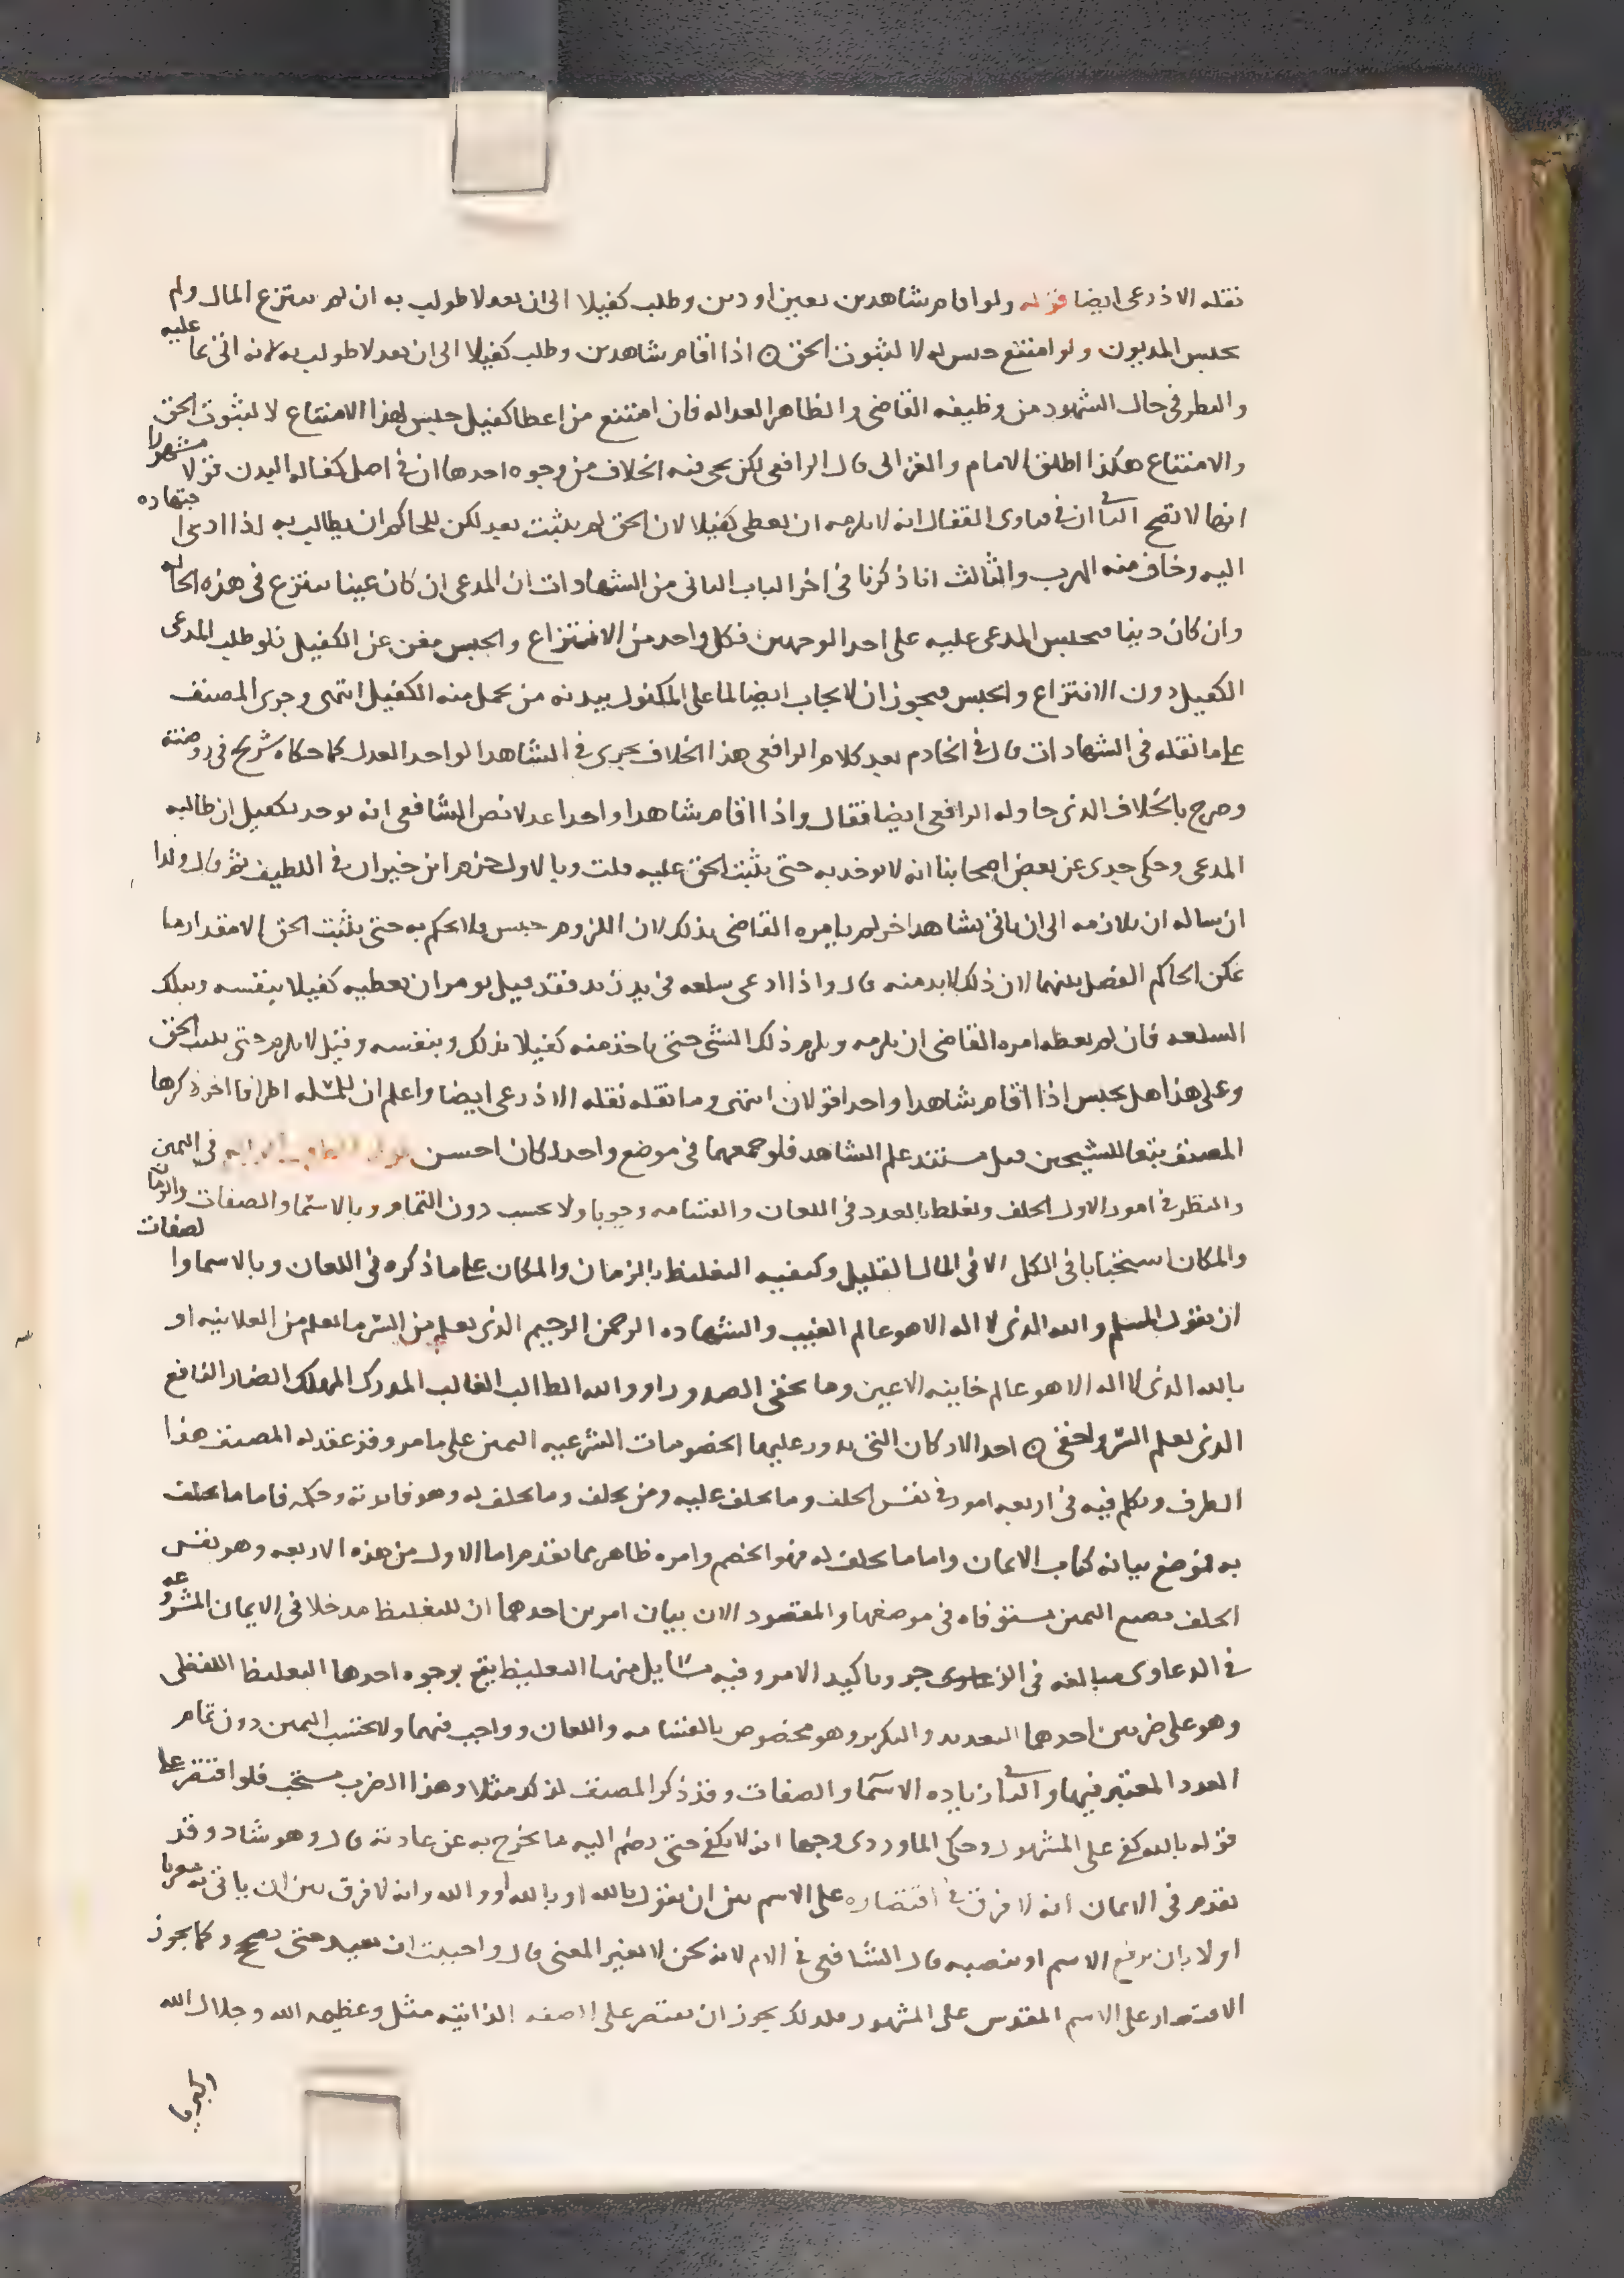 نقله الاذرعى ايضا قوله ولو اقام شاهدين بعين او دين وطلب كفيلا الى ان يعدلا طولب به ان لم ينتزع المال ولم
يحبس المديون ولو امتنع حبس له لا لثبوت الحق ۞ اذا اقام شاهدين وطلب كفيلا الى ان يعدلا طولب به لانه اتى بما عليه
والنظر فى حال الشهود من وظيفه القاضى والظاهر العداله فان امتنع من اعطا كفيل حبس لهذا الامتناع لا لثبوت الحق
والامتناع هكذا اطلق الامام والغزالى قال الرافعى لكن يجى فيه الخلاف من وجوه احدها ان فى اصل كفاله البدن قولا مشهورا
انها لا تصح الثانى ان فى فتاوى القفال انه لا يلزمه ان يعطى كفيلا لان الحق لم يثبت بعد لكن للحاكم ان يطالب به اذا ادى اجتهاده
اليه وخاف منه الهرب والثالث انا ذكرنا فى اخر الباب الثانى من الشهادات ان المدعى ان كان عينا ينتزع فى هذه الحاله
وان كان دينا فيحبس المدعى عليه على احد الوجهين فكل واحد من الانتزاع والحبس مغن عن الكفيل فلو طلب المدعى
الكفيل دون الانتزاع والحبس فيجوز ان لا يجاب ايضا لما على المكفول ببدنه من تحمل منه الكفيل انتهى وجرى المصنف
على ما نقله فى الشهادات قال فى الخادم بعد كلام الرافعى هذا الخلاف يجرى فى الشاهد الواحد العدل كما حكاه شريح فى روضته
وصرح بالخلاف الذى حاوله الرافعى ايضا فقال واذا اقام شاهدا واحدا عدلا نص الشافعى انه يوخذ بكفيل ان طالبه
المدعى وحكى جدى عن بعض اصحابنا انه لا يوخذ به حتى يثبت الحق عليه قلت وبالاول جزم ابن خيران فى اللطيف ثم قال ولذا
ان ساله ان يلازمه الى ان ياتى بشاهد اخر لم يامره القاضى بذلك لان اللزوم حبس فلا يحكم به حتى يثبت الحق الا مقدار ما
يمكن الحاكم الفصل بينهما لان ذلك لا بد منه قال واذا ادعى سلعه فى يد زيد فقد قيل يومر ان يعطيه كفيلا بنفسه وبتلك
السلعه فان لم يعطه امره القاضى ان يلزمه ويلزم ذلك الشى حتى ياخذ منه كفيلا بذلك وبنفسه وقيل لا يلزم حتى يثبت الحق
وعلى هذا هل يحبس اذا اقام شاهدا واحدا قولان انتهى وما نقله نقله الاذرعى ايضا واعلم ان للمسله اطرافا اخر ذكرها
المصنف تبعا للشيخين قبيل مستند علم الشاهد فلو جمعهما فى موضع واحد لكان احسن فى اليمين
والنظر فى امور الاول الحلف وتغلط بالعدد فى اللعان والقسامه وجوبا ولا يحسب دون التمام وبالاسما والصفات والزمان
والمكان استحبابا فى الكل الا فى المال القليل وكيفيه التغليظ بالزمان والمكان على ما ذكره فى اللعان وبالاسما والصفات
ان يقول المسلم والله الذى لا اله الا هو عالم الغيب والشهاده الرحمن الرحيم الذى يعلم من السر ما يعلم من العلانيه او
بالله الذى لا اله الا هو عالم خاينه الاعين وما تخفى الصدور او والله الطالب الغالب المدرك المهلك الضار النافع
الذى يعلم السر واخفى ۞ احد الاركان التى يدور عليها الخصومات الشرعيه اليمين على ما مر وقد عقد له المصنف هذا
الطرف وتكلم فيه فى اربعه امور فى نفس الحلف وما يحلف عليه ومن يحلف وما يحلف له وهو فايدته وحكمه فاما ما يحلف
به فموضع بيانه كتاب الايمان واما ما يحلف له فهو الخصم وامره ظاهر مما تقدم اما الاول من هذه الاربعه وهو نفس
الحلف فصيغ اليمين مستوفاه فى موضعها والمقصود الان بيان امرين احدهما ان للتغليظ مدخلا فى الايمان المشروعه
فى الدعاوى مبالغه فى الزجر وتاكيد الامر وفيه مسايل منها التغليظ يقع بوجوه احدها التغليظ اللفظى
وهو على ضربين احدهما التعديد والتكرير وهو مخصوص بالقسامه واللعان وواجب فيهما ولا يحتسب اليمين دون تمام
العدد المعتبر فيها والثانى زياده الاسما والصفات وقد ذكر المصنف لذلك مثلا وهذا الضرب مستحب فلو اقتصر على
قوله بالله كفى على المشهور وحكى الماوردى وجها انه لا يكفى حتى يضم اليه ما يخرج به عن عادته قال وهو شاذ وقد
تقدم فى الايمان انه لا فرق فى اقتصاره على الاسم بين ان يقول بالله او بالله او والله وانه لا فرق بين ان ياتى به معربا
اولا بان يرفع الاسم او ينصبه قال الشافعى فى الام لانه لحن لا يغير المعنى قال واحببت ان يعيد حتى يصح وكما يجوز
الاقتصار على الاسم المقدس على المشهور فلذلك يجوز ان يقتصر على الصفه الذاتيه مثل وعظمه الله وجلال الله
وكبريا